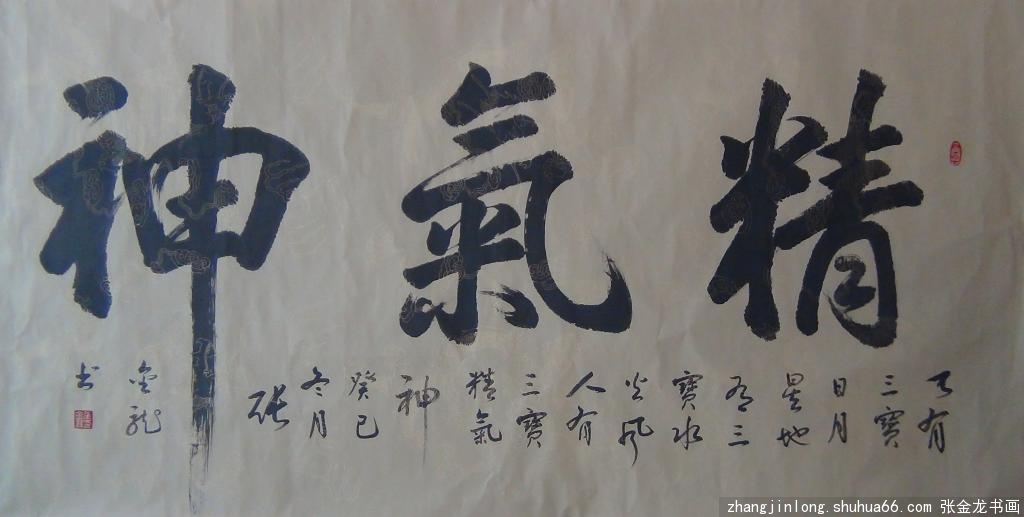 精氣神
天有
三寶
日月
星地
有三
寶水
火风
人有
三寶
精氣
神
癸巳
冬月
张
金龙
书
zhangjinlong.shuhua66.com 张金龙书画